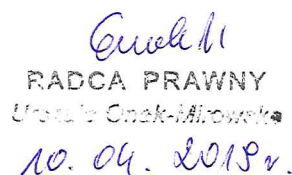 RADCA PRAWNY
Urszula Cnak-Mirowska
10. 04. 2019 r.